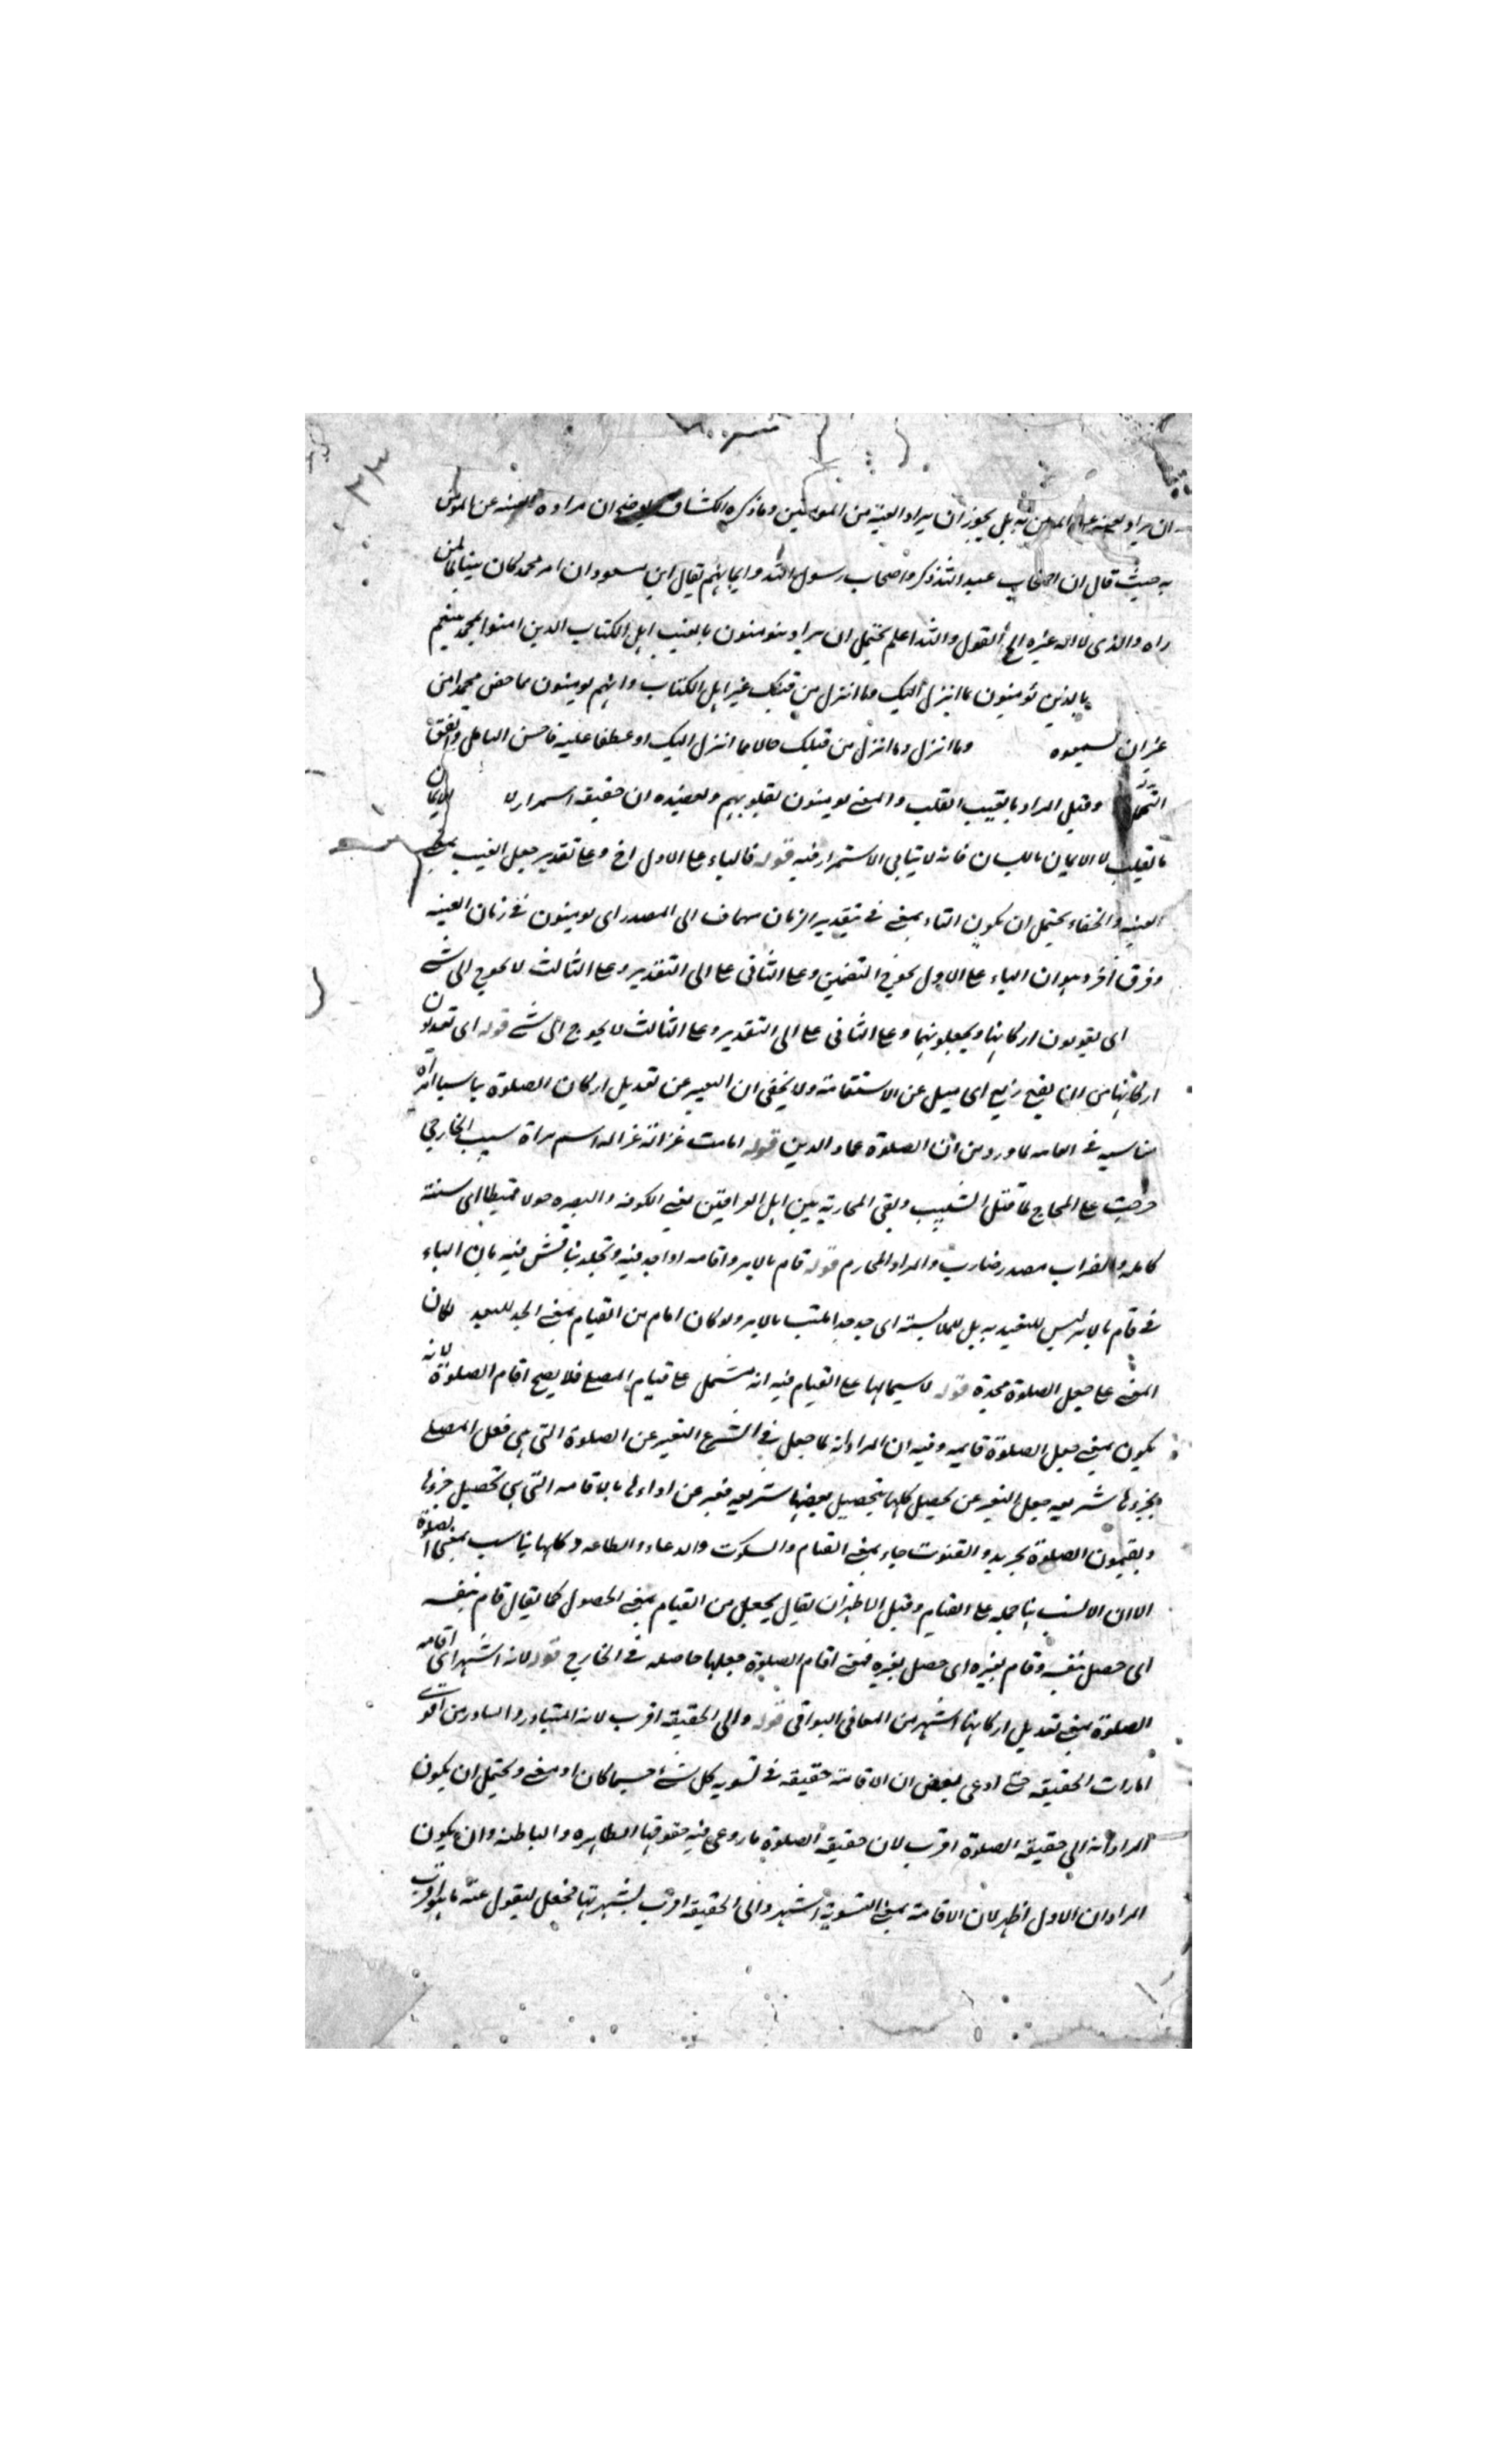 ان يراد بل يجوز ان يراد الغيبة من المومنين وما ذكره الكشاف يوضح ان مراده الغيبة عن المومن
به حيث قال ان اصحاب عبد الله ذكروا اصحاب رسول الله وايمانهم فقال ابن مسعود ان امر محمد كان بينا لمن
راه والذى لا اله غيره الخ القول والله اعلم يحتمل ان يراد بيومنون بالغيب اهل الكتاب الذين امنوا بمحمد
بالذين يؤمنون بما انزل اليك وما انزل من قبلك غير اهل الكتاب وانهم يومنون بما حض محمد
غير ان يسمعوه وما انزل وما انزل من قبلك حالا مما انزل اليك او عطفا عليه فاحسن التامل
وقيل المراد بالغيب القلب والمعنى يومنون بقلوبهم ويعضده ان حقيقة استمرار لا لايمان
بالقلب لا الايمان باللسان فانه لا يتاتى الاستمرار فيه قوله فالباء على الاول اخ وعلى تقدير جعل الغيب بمعنى
الغيبة والخفاء يحتمل ان يكون الباء بمعنى فى بتقدير الزمان مضاف الى المصدر اى يومنون فى زمان الغيبة
وفرق آخر وهو ان الباء على الاول يحوج التضمين وعلى الثانى على الى التقدير وعلى الثالث لا يحوج الى شئ
اى يقومون اركانها ويجعلونها وعلى الثانى على الى التقدير وعلى الثالث لا يحوج الى شئ قوله اى يعدلون
اركانها من ان يقع زيغ اى ميل عن الاستقامة ولا يخفى ان التعبير عن تعديل اركان الصلوة
مناسبة فى العامه لما ورد من ان الصلوة عماد الدين قوله اقامت غزالة غزاله اسم مراة شبيب الخارجى
خرجت على الحجاج لما قتل الشبيب وبقى المحاربة بين اهل العراقين يعنى الكوفه والبصره حولا قميطا اى سنة
كامله والضراب مصدر ضارب والمراد المحارم قوله قام بالامر واقامه اذا جد فيه وتجلد يناقش فيه بان الباء
فى قام بالامر ليس للتعديه بل للملابسته اى جد جدا ملتبسا بالامر ولو كان اقام من القيام بمعنى الجد للتعديه لكان
المعنى على جعل الصلوة مجدة قوله لاشتمالها على القيام فيه انه مشتمل على قيام المصلى فلا يصح اقام الصلوة لانه
يكون بمعنى جعل الصلوة قايمه وفيه ان المراد انه لما جعل فى الشرع التعبير عن الصلوة التى هى فعل المصلى
بجزءها شريعه جعل التعبير عن تحصيل كلها بتحصيل بعضها شريعه فعبر عن اداءها بالاقامه التى هى تحصيل جزءها
ويقيمون الصلوة تجريد والقنوت جاء بمعنى القيام والسكوت والدعاء والطاعه وكلها يناسب بمعنى الصلوة
الا ان الانسب هنا حمله على القيام وقيل الاظهر ان يقال يجعل من القيام بمعنى الحصول كما يقال قام بنفسه
اى حصل بنفسه وقام بغيره اى حصل بغيره فمعنى اقام الصلوة جعلها حاصله فى الخارج قوله لانه اشهر اى اقامه
الصلوة بمعنى تعديل اركانها اشهر من المعانى البواقى قوله والى الحقيقه اقرب لانه المتبادر والتبادر من اقوى
امارات الحقيقه حتى ادعى بعض ان الاقامة حقيقه فى تسويه كل شئ جسما كان او معنى ويحتمل ان يكون
المراد انه الى حقيقه الصلوة اقرب لان حقيقة الصلوة ما روعى فيه حقوقها الظاهره والباطنه وان يكون
المراد ان الاول اظهر لان الاقامة بمعنى التسوية اشهر والى الحقيقه اقرب لشهرتها